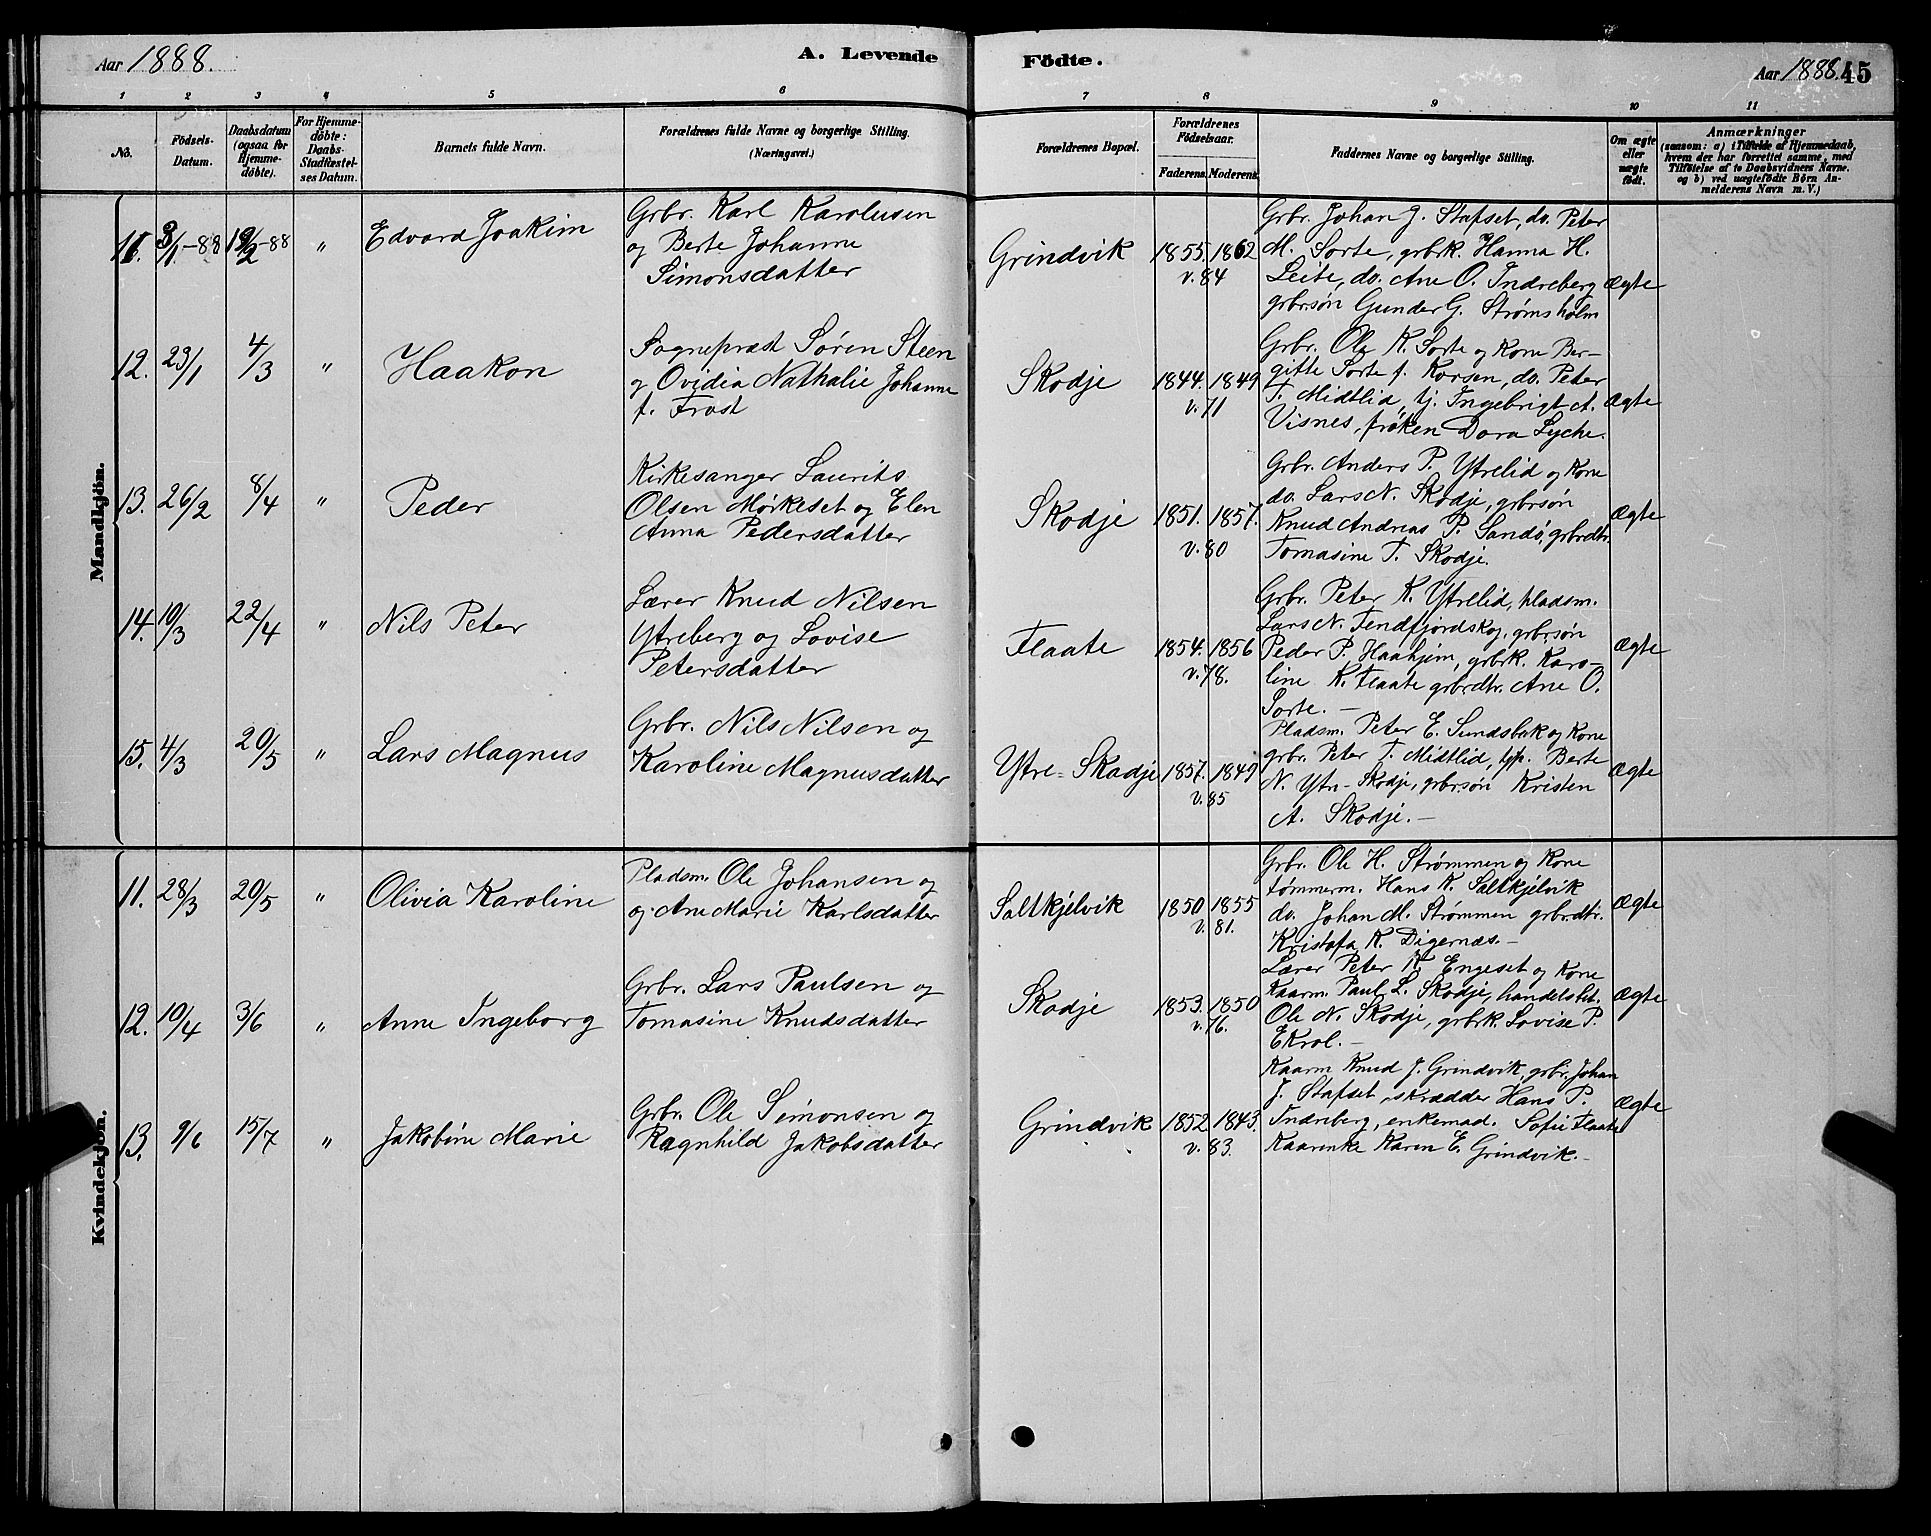 Aar 1888.
A. Levende
Födte.
Aar 1888. 45
1 2 3 4 5 6 7 8 9 10 11
No.
Födsels-
Datum.
Daabsdatum
(ogsaa for
Hjemme-
döbte).
For Hjemme-
döbte:
Daabs-
Stadfæstel-
ses Datum.
Barnets fulde Navn.
Forældrenes fulde Navne og borgerlige Stilling.
(Næringsvei.)
Forældrenes Bopæl.
Forældrenes
Födselsaar.
Faderens. Moderens.
Faddernes Navne og borgerlige Stilling.
Om ægte
eller
uægte
födt.
Anmærkninger
(saasom: a) i Tilfælde af Hjemmedaab,
hvem der har forrettet samme, med
Tilföielse af to Daabsvidners Navne.
og b) ved uægtefödte Börn An-
melderens Navn m. V.)
Mandkjön.
11. 3/1-88 19/2-88 " Edvard Joakim
Grbr. Karl Karolusen
og Berte Johanne
Simonsdatter
Grindvik 1855. 1862
v. 84
Grbr. Johan J. Stafset, do. Peter
M. Sorte, grbrk. Hanna H.
Leite, do. Ane O. Indreberg
grbrsøn Gunder G. Strømsholm
Ægte
12. 23/1 4/3 " Haakon
Sognepræst Søren Steen
og Ovidia Nathalie Johanne
f. Frost
Skodje 1844. 1849
v. 71
Grbr. Ole K. Sorte og Kone Ber-
gitte Sorte f. Korsen, do. Peter
T. Midtlid, tj. Ingebrigt A.
Visnes, frøken Dora Lyche.
Ægte
13. 26/2 8/4 " Peder
Kirkesanger Laurits
Olsen Mørkeset og Elen
Anna Pedersdatter
Skodje 1851. 1857.
v. 80
Grbr. Anders P. Ytrelid og Kone
do. Lars N. Skodje, grbrsøn
Knud Andreas P. Sandø, grbrdtr.
Tomasine T. Skodje.
Ægte
14. 10/3 22/4 " Nils Peter
Lærer Knud Nilsen
Ytreberg og Lovise
Petersdatter
Flaate 1854. 1856
v. 78.
Grbr. Peter K. Ytrelid, pladsm.
Lars N. Tendfjordskog, grbrsøn
Peder P. Haahjem, grbrk. Karo-
line K. Flaate grbrdtr. Ane O.
Sorte. –
Ægte
15. 4/3 20/5 " Lars Magnus
Grbr. Nils Nilsen og
Karoline Magnusdatter
Ytre-Skodje 1857. 1849
v. 85
Pladsm. Peter E. Sundsbak og Kone
grbr. Peter T. Midtlid, Berte
N. Ytre-Skodje, grbrsøn Kristen
A. Skodje. –
Ægte
Kvindekjön.
11. 28/3 20/5 " Olivia Karoline
Pladsm. Ole Johansen og
og Ane Marie Karlsdatter
Saltkjelvik 1850 1855
v. 81.
Grbr. Ole H. Strømmen og Kone
tømmerm. Hans K. Saltkjelvik
do. Johan M. Strømmen grbrdtr.
Kristofa K. Digernæs. –
Ægte
12. 10/4 3/6 " Anne Ingeborg
Grbr. Lars Paulsen og
Tomasine Knudsdatter
Skodje 1853. 1850
v. 76.
Lærer Peter K. Engeset og Kone
Kaarm. Paul L. Skodje, handelsbet.
Ole N. Skodje, grbrk. Lovise P.
Ekrol. –
Ægte
13. 9/6 15/7 " Jakobine Marie
Grbr. Ole Simonsen og
Ragnhild Jakobsdatter
Grindvik 1852. 1843.
v. 83.
Kaarm Knud J. Grindvik, grbr. Johan
J. Stafset, skrædder Hans P.
Indreberg, enkemad. Sofie Flaate
Kaarenke Karen E. Grindvik. –
Ægte